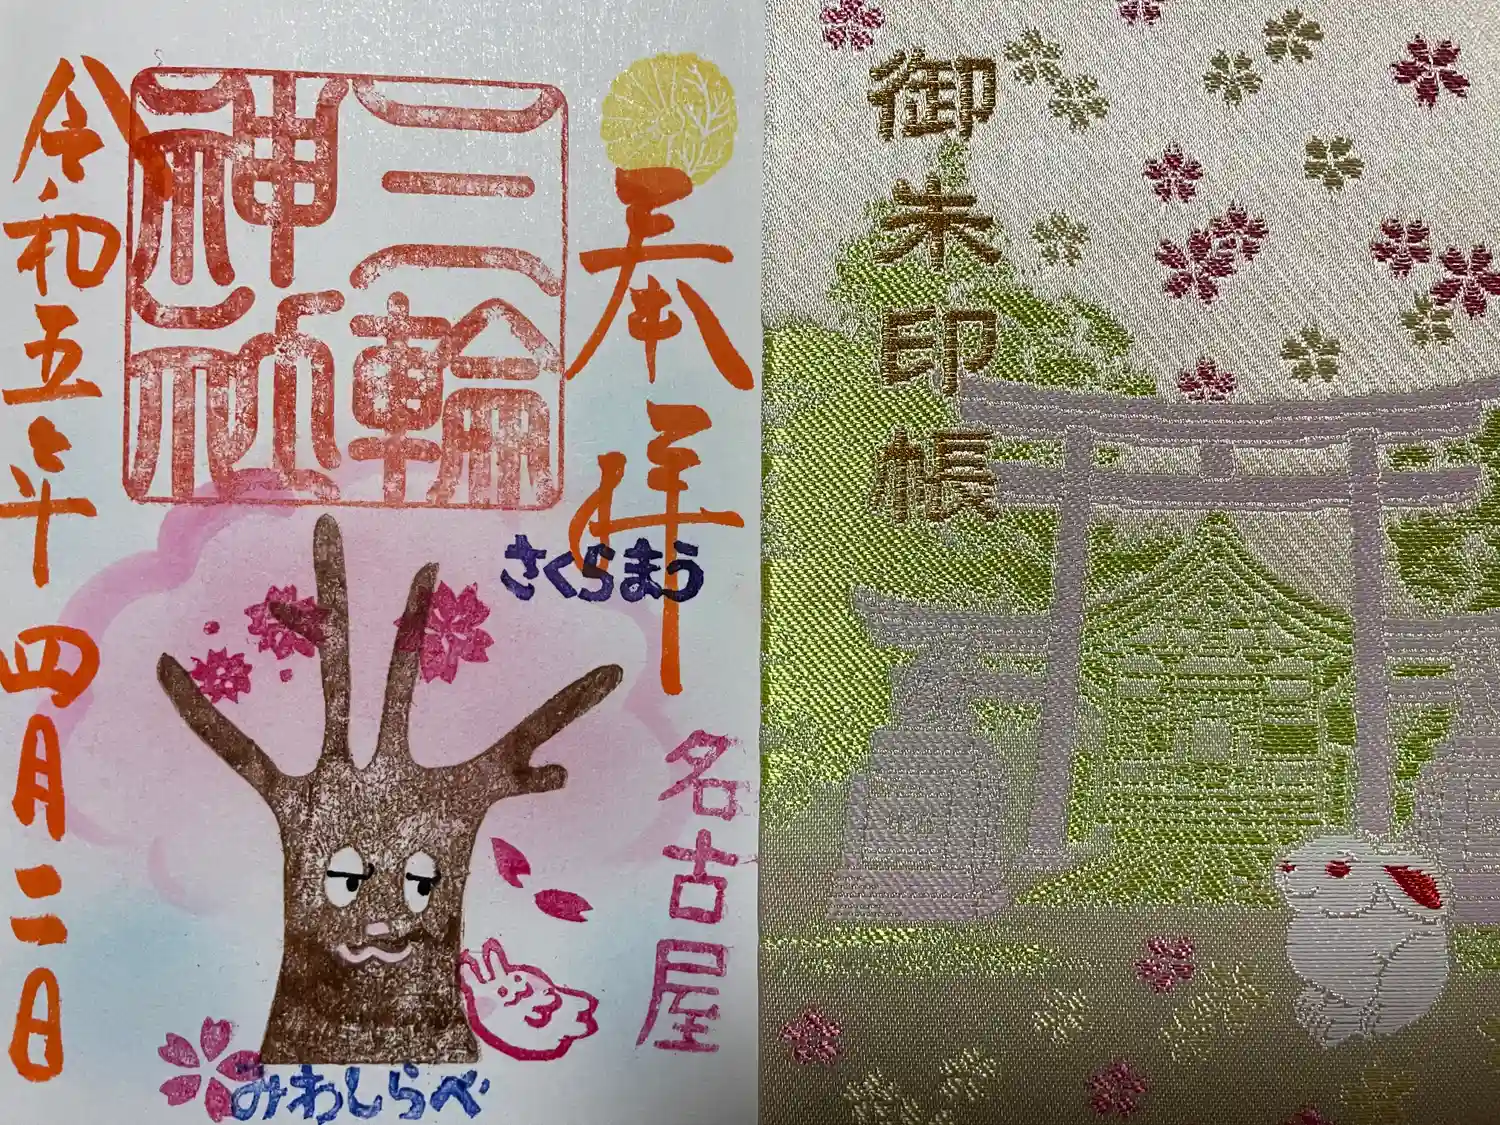 奉拝
さくらまう
名古屋
三輪
神社
令和五年 四月二日
みわしらべ
御朱印帳